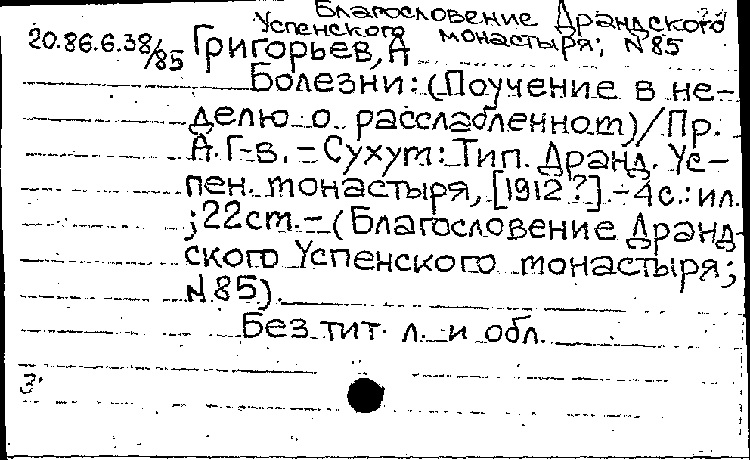 Благословение Драндского
Успенского монастыря; N85
20.86.6.38/85
Григорьев, А
Болезни: (Поучение в не-
делю о расслабленном)/Пр.
А. Г-в. – Сухум: Тип. Дранд. Ус-
пен. монастыря, [1912?]. – 4с.: ил.
; 22см. – (Благословение Дранд-
ского Успенского монастыря;
N85).
Без тит. л. и обл.
3